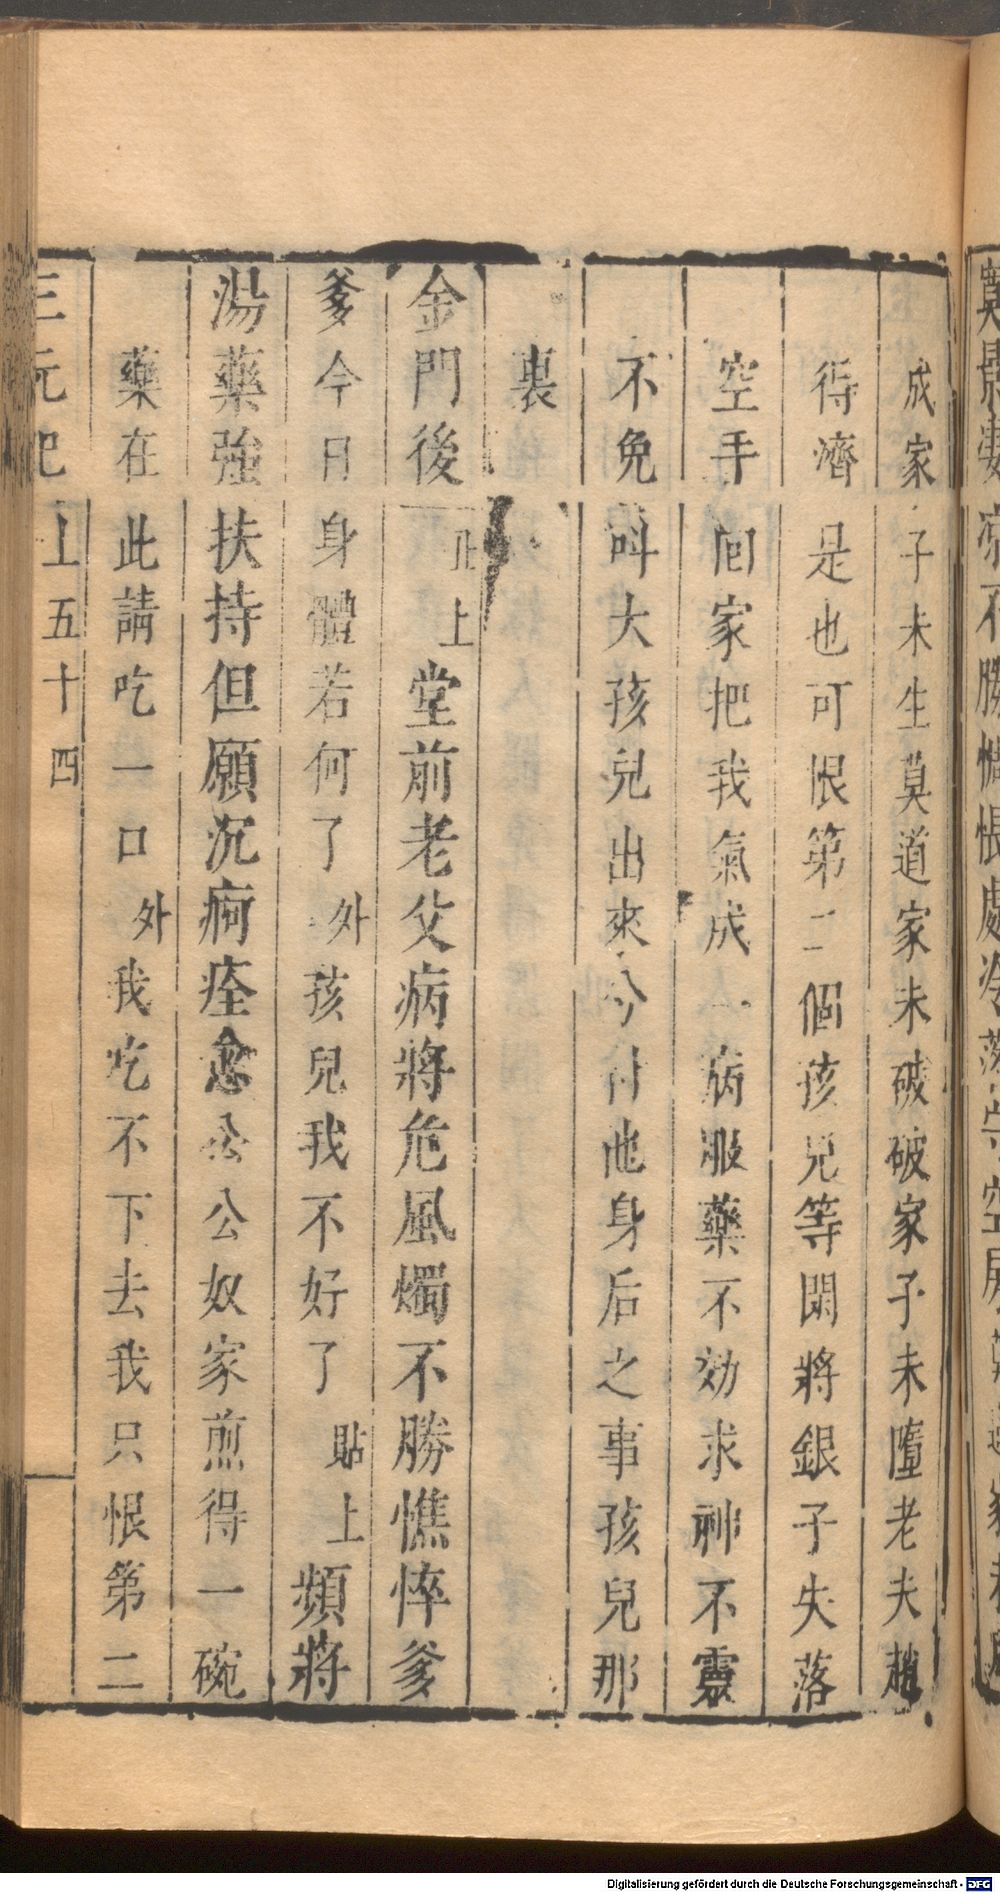 成家子未生莫道家未破破家子未墮老夫趙
得濟是也可恨第二個孩兒等閑將銀子失落
空手囘家把我氣成一病服藥不効求神不靈
不免呌大孩兒出來分付他身后之事孩兒那
裏
金門後 上堂前老父病將危風燭不勝憔悴爹
爹今日身體若何了外孩兒我不好了貼上頻將
湯藥強扶持但願沉痾痊愈公公奴家煎得一碗
藥在此請吃一口外我吃不下去我只恨第二
三元記 上五十四
Digitalisierung gefördert durch die Deutsche Forschungsgemeinschaft - DFG